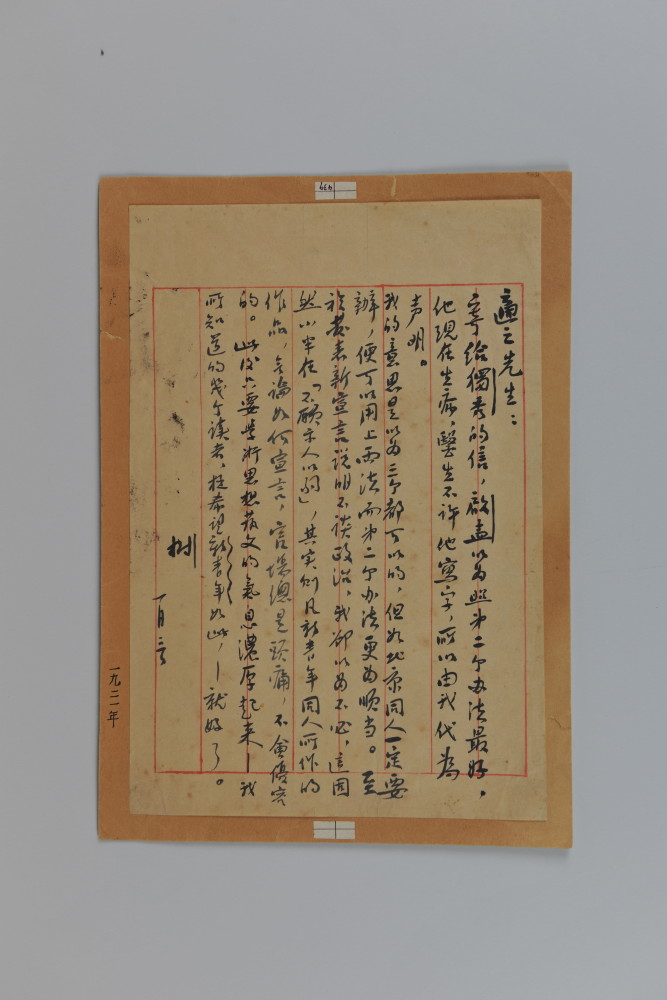 適之先生：
寄給獨秀的信，啟孟以為照第二个办法最好，
他現在生病，醫生不許他寫字，所以由我代為
声明。
我的意思是以為三个都可以的，但如北京同人一定要
辦，便可以用上兩法而第二个办法更為順当。至
於發表新宣言說明不談政治，我卻以為不必，這固
然小半在「不願示人以弱」，其实則凡新青年同人所作的
作品，無論如何宣言，官場總是頭痛，不會優容
的。此後只要學術思想藝文的氣息濃厚起來——我
所知道的幾个讀者，極希望新青年如此，——就好了。
樹
一月三日
一九二一年